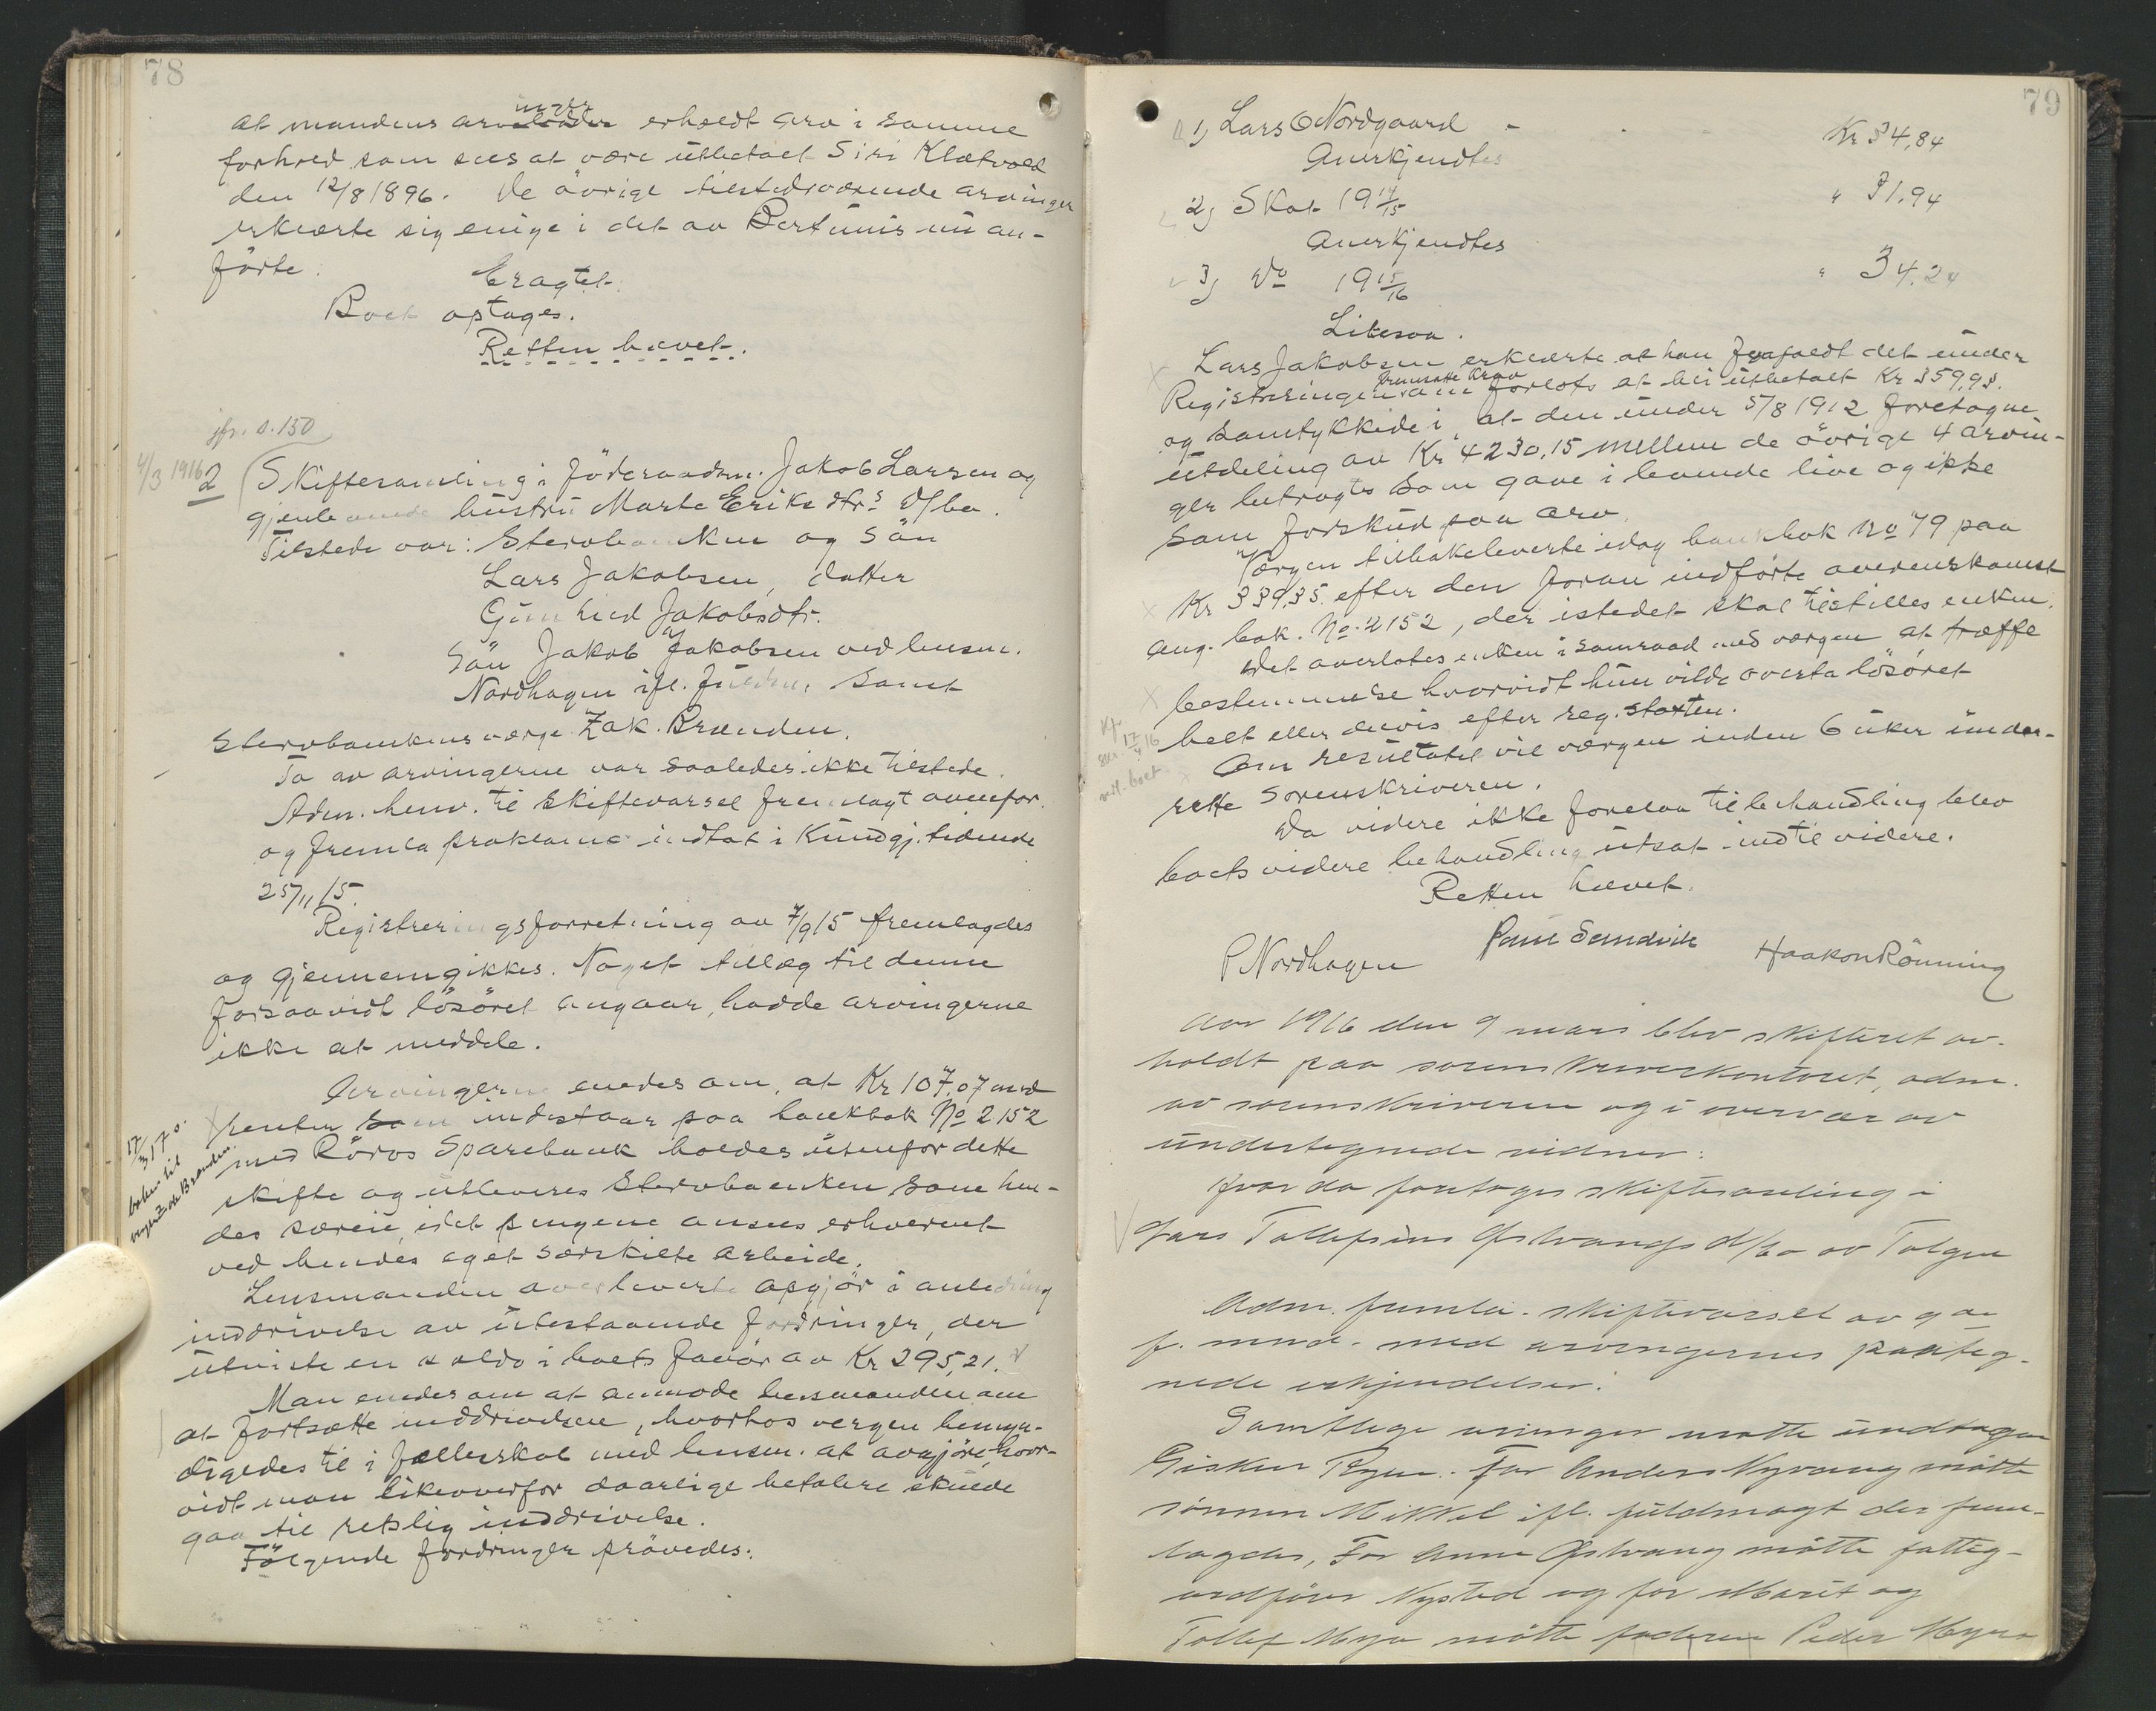 78
at mandens arvinger erholdt arv i samme
forhold som sees at være utbetalt Siri Kletvold
den 12/8 1896. De övrige tilstedeværende arvinger
erklærte sig enige i det av Bertinius nu an-
förte.
Eragtet:
Boet optages.
Retten hævet.
jfr. s. 150
4/3 1916 2 Skiftesamling i föderaadsm. Jakob Larsen og
gjenlevende hustru Marte Eriksdtrs d/bo.
Tilstede var: Stervboenken og sön
Lars Jakobsen, datter
Gunhild Jakobsdtr.
Sön Jakob Jakobsen ved lensm.
Nordhagen ifl. fuldm. samt
Stervboenkens værge Zak. Brænden.
To av arvingerne var saaledes ikke tilstede.
Adm. henv. til skiftevarsel fremlagt ovenfor.
og fremla proklama indtat i Kundgj. tidende
25/11 15.
Registreringsforretning av 7/9 15 fremlagdes
og gjennemgikkes. Noget tillæg til denne
forsaavidt lösöret angaar, hadde arvingerne
ikke at meddele.
Arvingerne enedes om, at Kr 107.07 med
renter som indestaar paa bankbok No 2152
med Röros Sparebank holdes utenfor dette
skifte og utleveres Stervboenken som hen-
des særeie, idet pengene ansees erhvervet
ved hendes eget særskilte arbeide.
17/3 17 s.
boken til
Brænden.
Lensmanden overleverte opgjör i anledning
inddrivelse av utestaaende fordringer, der
utviste en saldo i boets favör av Kr 295,21.
Man enedes om at anmode lensmanden om
at fortsætte inddrivelsen, hvorhos vergen bemyn-
digedes til i fællesskab med lensm. at avgjöre, hvor-
vidt man likeoverfor daarlige betalere skulde
gaa til retslig inddrivelse.
Fölgende fordringer prövedes:
79
1) Lars O Nordgaard - Kr 34,84
Anerkjendtes
2) Skat 19 14/15 " 31.94
Anerkjendtes
3) Do 19 15/16 " 34.24
Likesaa.
Lars Jakobsen erklærte at han frafaldt det under
Registreringen fremsatte krav forlots at bli utbetalt Kr 359,93.
og samtykkede i, at den under 5/8 1912 foretagne
utdeling av Kr 4230,15 mellem de övrige 4 arvin-
ger betragtes som gave i levende live og ikke
som forskud paa arv.
Værgen tilbakeleverte idag bankbok No 79 paa
Kr 339,35. efter den foran indförte overenskomst
ang. bok. No. 2152, der istedet skal tilstilles enken.
Det overlotes enken i samraad med værgen at træffe
bestemmelse hvorvidt hun vilde overta lösöret
helt eller delvis efter reg. staxten.
Om resultatet vil værgen inden 6 uker under-
rette Sorenskriveren.
Da videre ikke forelaa til behandling blev
boets videre behandling utsat indtil videre.
Retten hævet.
P Nordhagen Paul Sandvik Haakon Rönning
Aar 1916 den 9 mars blev skifteret av-
holdt paa sorenskriverkontoret, adm.
av sorenskriveren og i overvær av
undertegnede vidner:
Hvor da foretoges skiftesamling i
Lars Tollefsens Östvangs d/bo av Tolgen
Adm. fremla skiftevarsel av 9de
f. mnd. med arvingernes paateg-
nede erkjendelser.
Samtlige arvinger mötte undtagen
Gisken Rygen. For Anders Nyvang mötte
sönnen Mikkel ifl. fuldmagt der frem-
lagdes, For Anne Östvang mötte fattig-
ordförer Nysted og for Marit og
Tollef Moga mötte faderen Peder